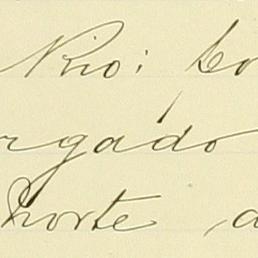 Rio: Co
rgado
Norte, d